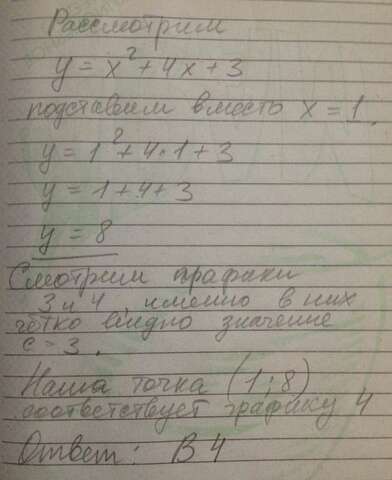 Рассмотрим
y = x² + 4x + 3
подставим вместо x = 1.
y = 1² + 4·1 + 3
y = 1 + 4 + 3
y = 8
Смотрим графики
3 и 4, именно в них
чётко видно значение
c = 3.
Наша точка (1; 8)
соответствует графику 4
Ответ: В 4